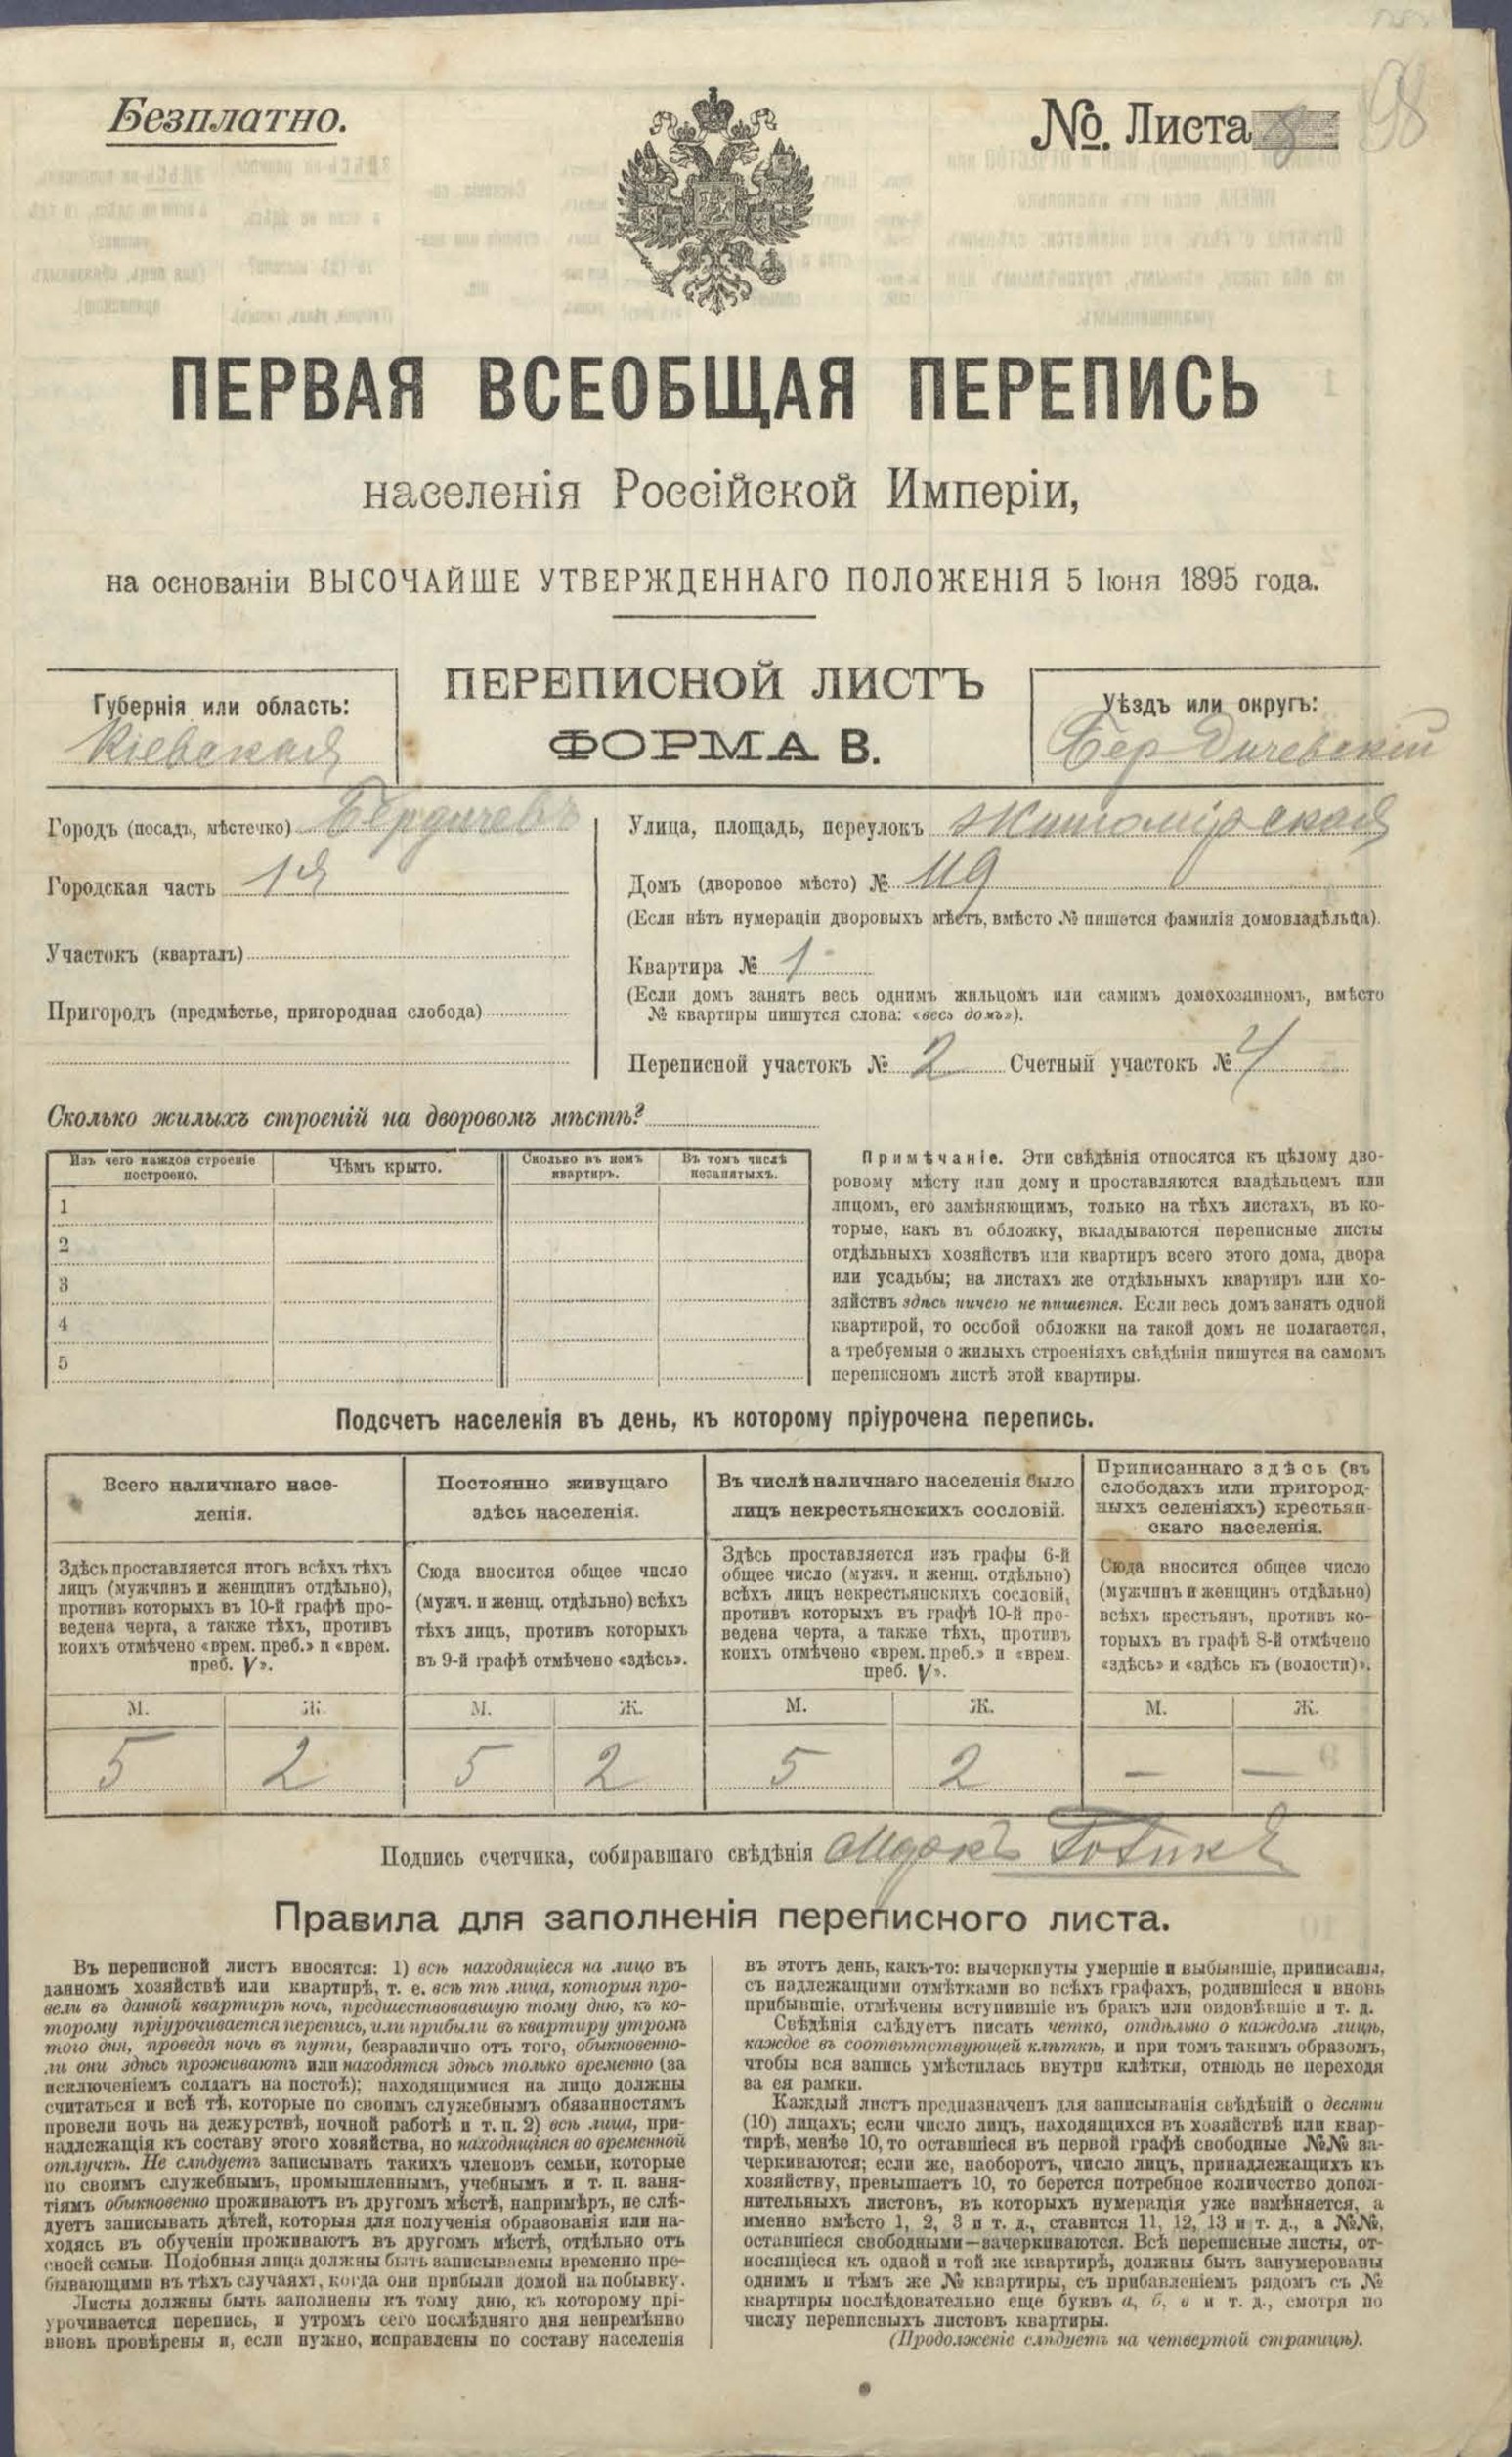 Безплатно.
№. Листа 8
98
ПЕРВАЯ ВСЕОБЩАЯ ПЕРЕПИСЬ
населенія Россійской Имперіи,
на основаніи ВЫСОЧАЙШЕ УТВЕРЖДЕННАГО ПОЛОЖЕНІЯ 5 Іюня 1895 года.
Губернія или область:
Кіевская
ПЕРЕПИСНОЙ ЛИСТЪ
ФОРМА В.
Уѣздъ или округъ:
Бердичевскій
Городъ (посадъ, мѣстечко) Бердичевъ
Городская часть 1я
Участокъ (кварталъ)
Пригородъ (предмѣстье, пригородная слобода)
Улица, площадь, переулокъ Житомірская
Домъ (дворовое мѣсто) № 119
(Если нѣтъ нумераціи дворовыхъ мѣстъ, вмѣсто № пишется фамилія домовладѣльца).
Квартира № 1
(Если домъ занятъ весь однимъ жильцомъ или самимъ домохозяиномъ, вмѣсто
№ квартиры пишутся слова: «весь домъ»).
Переписной участокъ № 2 Счетный участокъ № 4
Сколько жилыхъ строеній на дворовомъ мѣстѣ?
Изъ чего каждое строеніе
построено.
Чѣмъ крыто.
Сколько въ немъ
квартиръ.
Въ томъ числѣ
незанятыхъ.
1
2
3
4
5
Примѣчаніе. Эти свѣдѣнія относятся къ цѣлому дво-
ровому мѣсту или дому и проставляются владѣльцемъ или
лицомъ, его замѣняющимъ, только на тѣхъ листахъ, въ ко-
торые, какъ въ обложку, вкладываются переписные листы
отдѣльныхъ хозяйствъ или квартиръ всего этого дома, двора
или усадьбы; на листахъ же отдѣльныхъ квартиръ или хо-
зяйствъ здѣсь ничего не пишется. Если весь домъ занятъ одной
квартирой, то особой обложки на такой домъ не полагается,
а требуемыя о жилыхъ строеніяхъ свѣдѣнія пишутся на самомъ
переписномъ листѣ этой квартиры.
Подсчетъ населенія въ день, къ которому пріурочена перепись.
Всего наличнаго насе-
ленія.
Здѣсь проставляется итогъ всѣхъ тѣхъ
лицъ (мужчинъ и женщинъ отдѣльно),
противъ которыхъ въ 10-й графѣ про-
ведена черта, а также тѣхъ, противъ
коихъ отмѣчено «врем. преб.» и «врем.
преб. V».
М. Ж.
5 2
Постоянно живущаго
здѣсь населенія.
Сюда вносится общее число
(мужч. и женщ. отдѣльно) всѣхъ
тѣхъ лицъ, противъ которыхъ
въ 9-й графѣ отмѣчено «здѣсь».
М. Ж.
5 2
Въ числѣ наличнаго населенія было
лицъ некрестьянскихъ сословій.
Здѣсь проставляется изъ графы 6-й
общее число (мужч. и женщ. отдѣльно)
всѣхъ лицъ некрестьянскихъ сословій,
противъ которыхъ въ графѣ 10-й про-
ведена черта, а также тѣхъ, противъ
коихъ отмѣчено «врем. преб.» и «врем.
преб. V».
М. Ж.
5 2
Приписаннаго здѣсь (въ
слободахъ или пригород-
ныхъ селеніяхъ) крестьян-
скаго населенія.
Сюда вносится общее число
(мужчинъ и женщинъ отдѣльно)
всѣхъ крестьянъ, противъ ко-
торыхъ въ графѣ 8-й отмѣчено
«здѣсь» и «здѣсь къ (волости)».
М. Ж.
— —
Подпись счетчика, собиравшаго свѣдѣнія
Правила для заполненія переписного листа.
Въ переписной листъ вносятся: 1) всѣ находящіеся на лицо въ
данномъ хозяйствѣ или квартирѣ, т. е. всѣ тѣ лица, которыя про-
вели въ данной квартирѣ ночь, предшествовавшую тому дню, къ ко-
торому пріурочивается перепись, или прибыли въ квартиру утромъ
того дня, проведя ночь въ пути, безразлично отъ того, обыкновенно-
ли они здѣсь проживаютъ или находятся здѣсь только временно (за
исключеніемъ солдатъ на постоѣ); находящимися на лицо должны
считаться и всѣ тѣ, которые по своимъ служебнымъ обязанностямъ
провели ночь на дежурствѣ, ночной работѣ и т. п. 2) всѣ лица, при-
надлежащія къ составу этого хозяйства, но находящіяся во временной
отлучкѣ. Не слѣдуетъ записывать такихъ членовъ семьи, которые
по своимъ служебнымъ, промышленнымъ, учебнымъ и т. п. заня-
тіямъ обыкновенно проживаютъ въ другомъ мѣстѣ, напримѣръ, не слѣ-
дуетъ записывать дѣтей, которыя для полученія образованія или на-
ходясь въ обученіи проживаютъ въ другомъ мѣстѣ, отдѣльно отъ
своей семьи. Подобныя лица должны быть записываемы временно пре-
бывающими въ тѣхъ случаяхъ, когда они прибыли домой на побывку.
Листы должны быть заполнены къ тому дню, къ которому прі-
урочивается перепись, и утромъ сего послѣдняго дня непремѣнно
вновь провѣрены и, если нужно, исправлены по составу населенія
въ этотъ день, какъ-то: вычеркнуты умершіе и выбывшіе, приписаны,
съ надлежащими отмѣтками во всѣхъ графахъ, родившіеся и вновь
прибывшіе, отмѣчены вступившіе въ бракъ или овдовѣвшіе и т. д.
Свѣдѣнія слѣдуетъ писать четко, отдѣльно о каждомъ лицѣ,
каждое въ соотвѣтствующей клѣткѣ, и при томъ такимъ образомъ,
чтобы вся запись умѣстилась внутри клѣтки, отнюдь не переходя
за ея рамки.
Каждый листъ предназначенъ для записыванія свѣдѣній о десяти
(10) лицахъ; если число лицъ, находящихся въ хозяйствѣ или квар-
тирѣ, менѣе 10, то оставшіеся въ первой графѣ свободные №№ за-
черкиваются; если же, наоборотъ, число лицъ, принадлежащихъ къ
хозяйству, превышаетъ 10, то берется потребное количество допол-
нительныхъ листовъ, въ которыхъ нумерація уже измѣняется, а
именно вмѣсто 1, 2, 3 и т. д., ставится 11, 12, 13 и т. д., а №№,
оставшіеся свободными—зачеркиваются. Всѣ переписные листы, от-
носящіеся къ одной и той же квартирѣ, должны быть занумерованы
однимъ и тѣмъ же № квартиры, съ прибавленіемъ рядомъ съ №
квартиры послѣдовательно еще буквъ а, б, в и т. д., смотря по
числу переписныхъ листовъ квартиры.
(Продолженіе слѣдуетъ на четвертой страницѣ).